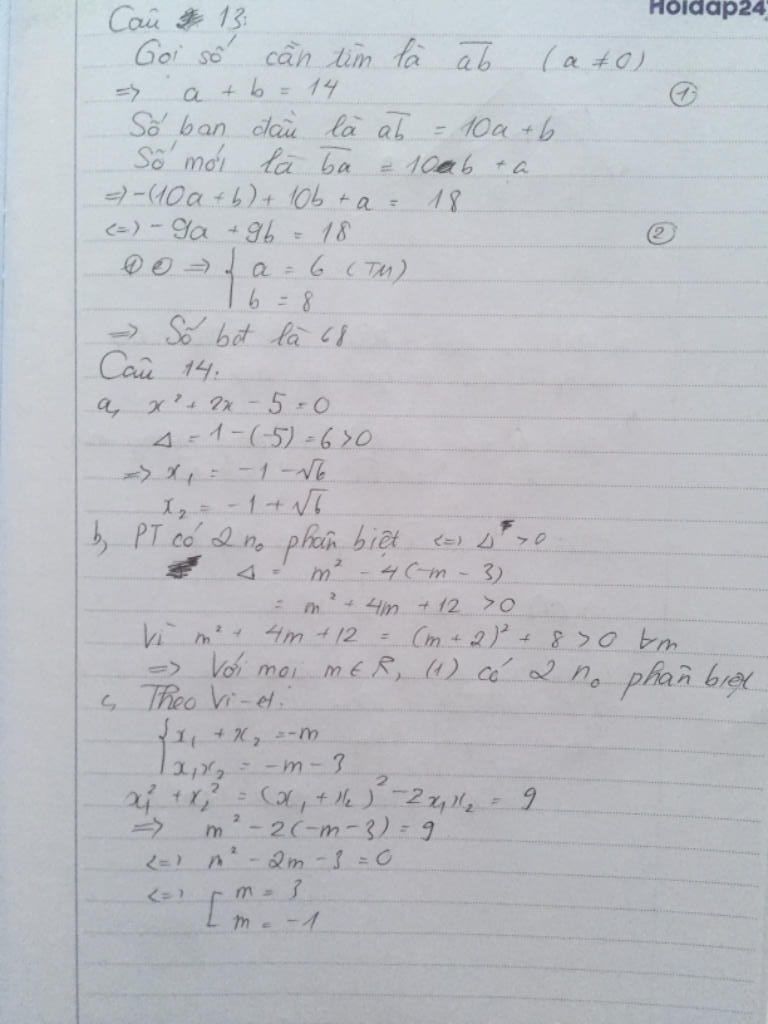 Hoidap24
Câu 13:
Gọi số cần tìm là ab (a ≠ 0)
=> a + b = 14 (1)
Số ban đầu là ab = 10a + b
Số mới là ba = 10b + a
=> -(10a + b) + 10b + a = 18
<=> -9a + 9b = 18 (2)
(1) (2) => { a = 6 (TM)
b = 8
=> Số bđ là 68
Câu 14:
a, x² + 2x - 5 = 0
Δ = 1 - (-5) = 6 > 0
=> x₁ = -1 - √6
x₂ = -1 + √6
b, PT có 2 n₀ phân biệt <=> Δ > 0
Δ = m² - 4(-m - 3)
= m² + 4m + 12 > 0
Vì m² + 4m + 12 = (m + 2)² + 8 > 0 ∀m
=> Với mọi m ∈ R, (1) có 2 n₀ phân biệt
c, Theo Vi-et:
{ x₁ + x₂ = -m
x₁x₂ = -m - 3
x₁² + x₂² = (x₁ + x₂)² - 2x₁x₂ = 9
=> m² - 2(-m - 3) = 9
<=> m² - 2m - 3 = 0
<=> [ m = 3
m = -1